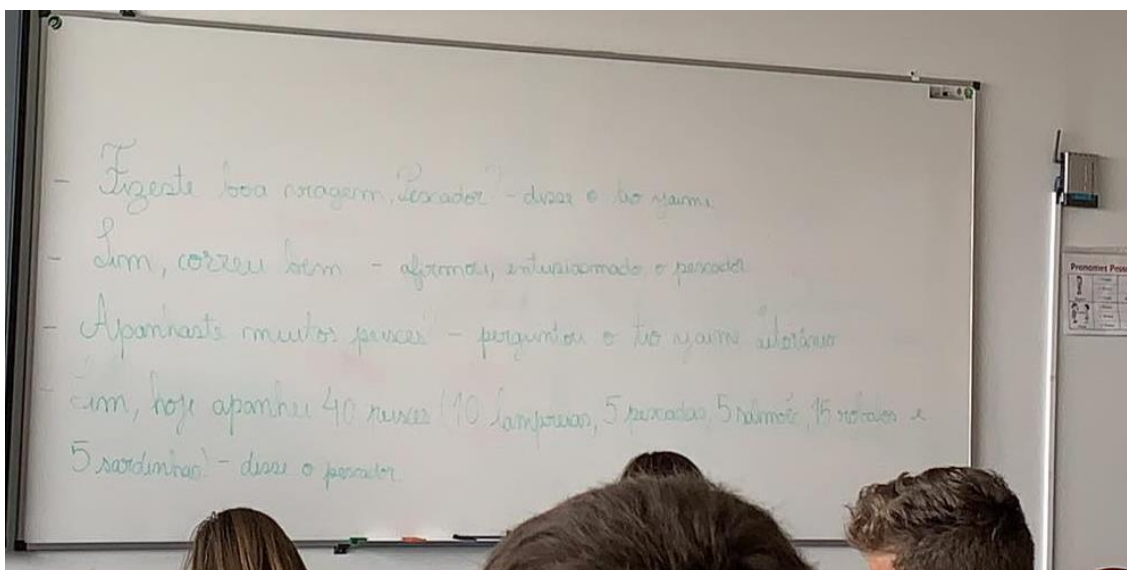 - Fizeste boa viagem, Pescador? - disse o tio yaime
- Sim, correu bem - afirmou, entusiasmado, o pescador
- Apanhaste muitos peixes? - perguntou o tio yaime
- Sim, hoje apanhei 40 peixes (10 lampreias, 5 pescadas, 5 salmões, 15 robalos e
5 sardinhas) - disse o pescador.
Pronomes